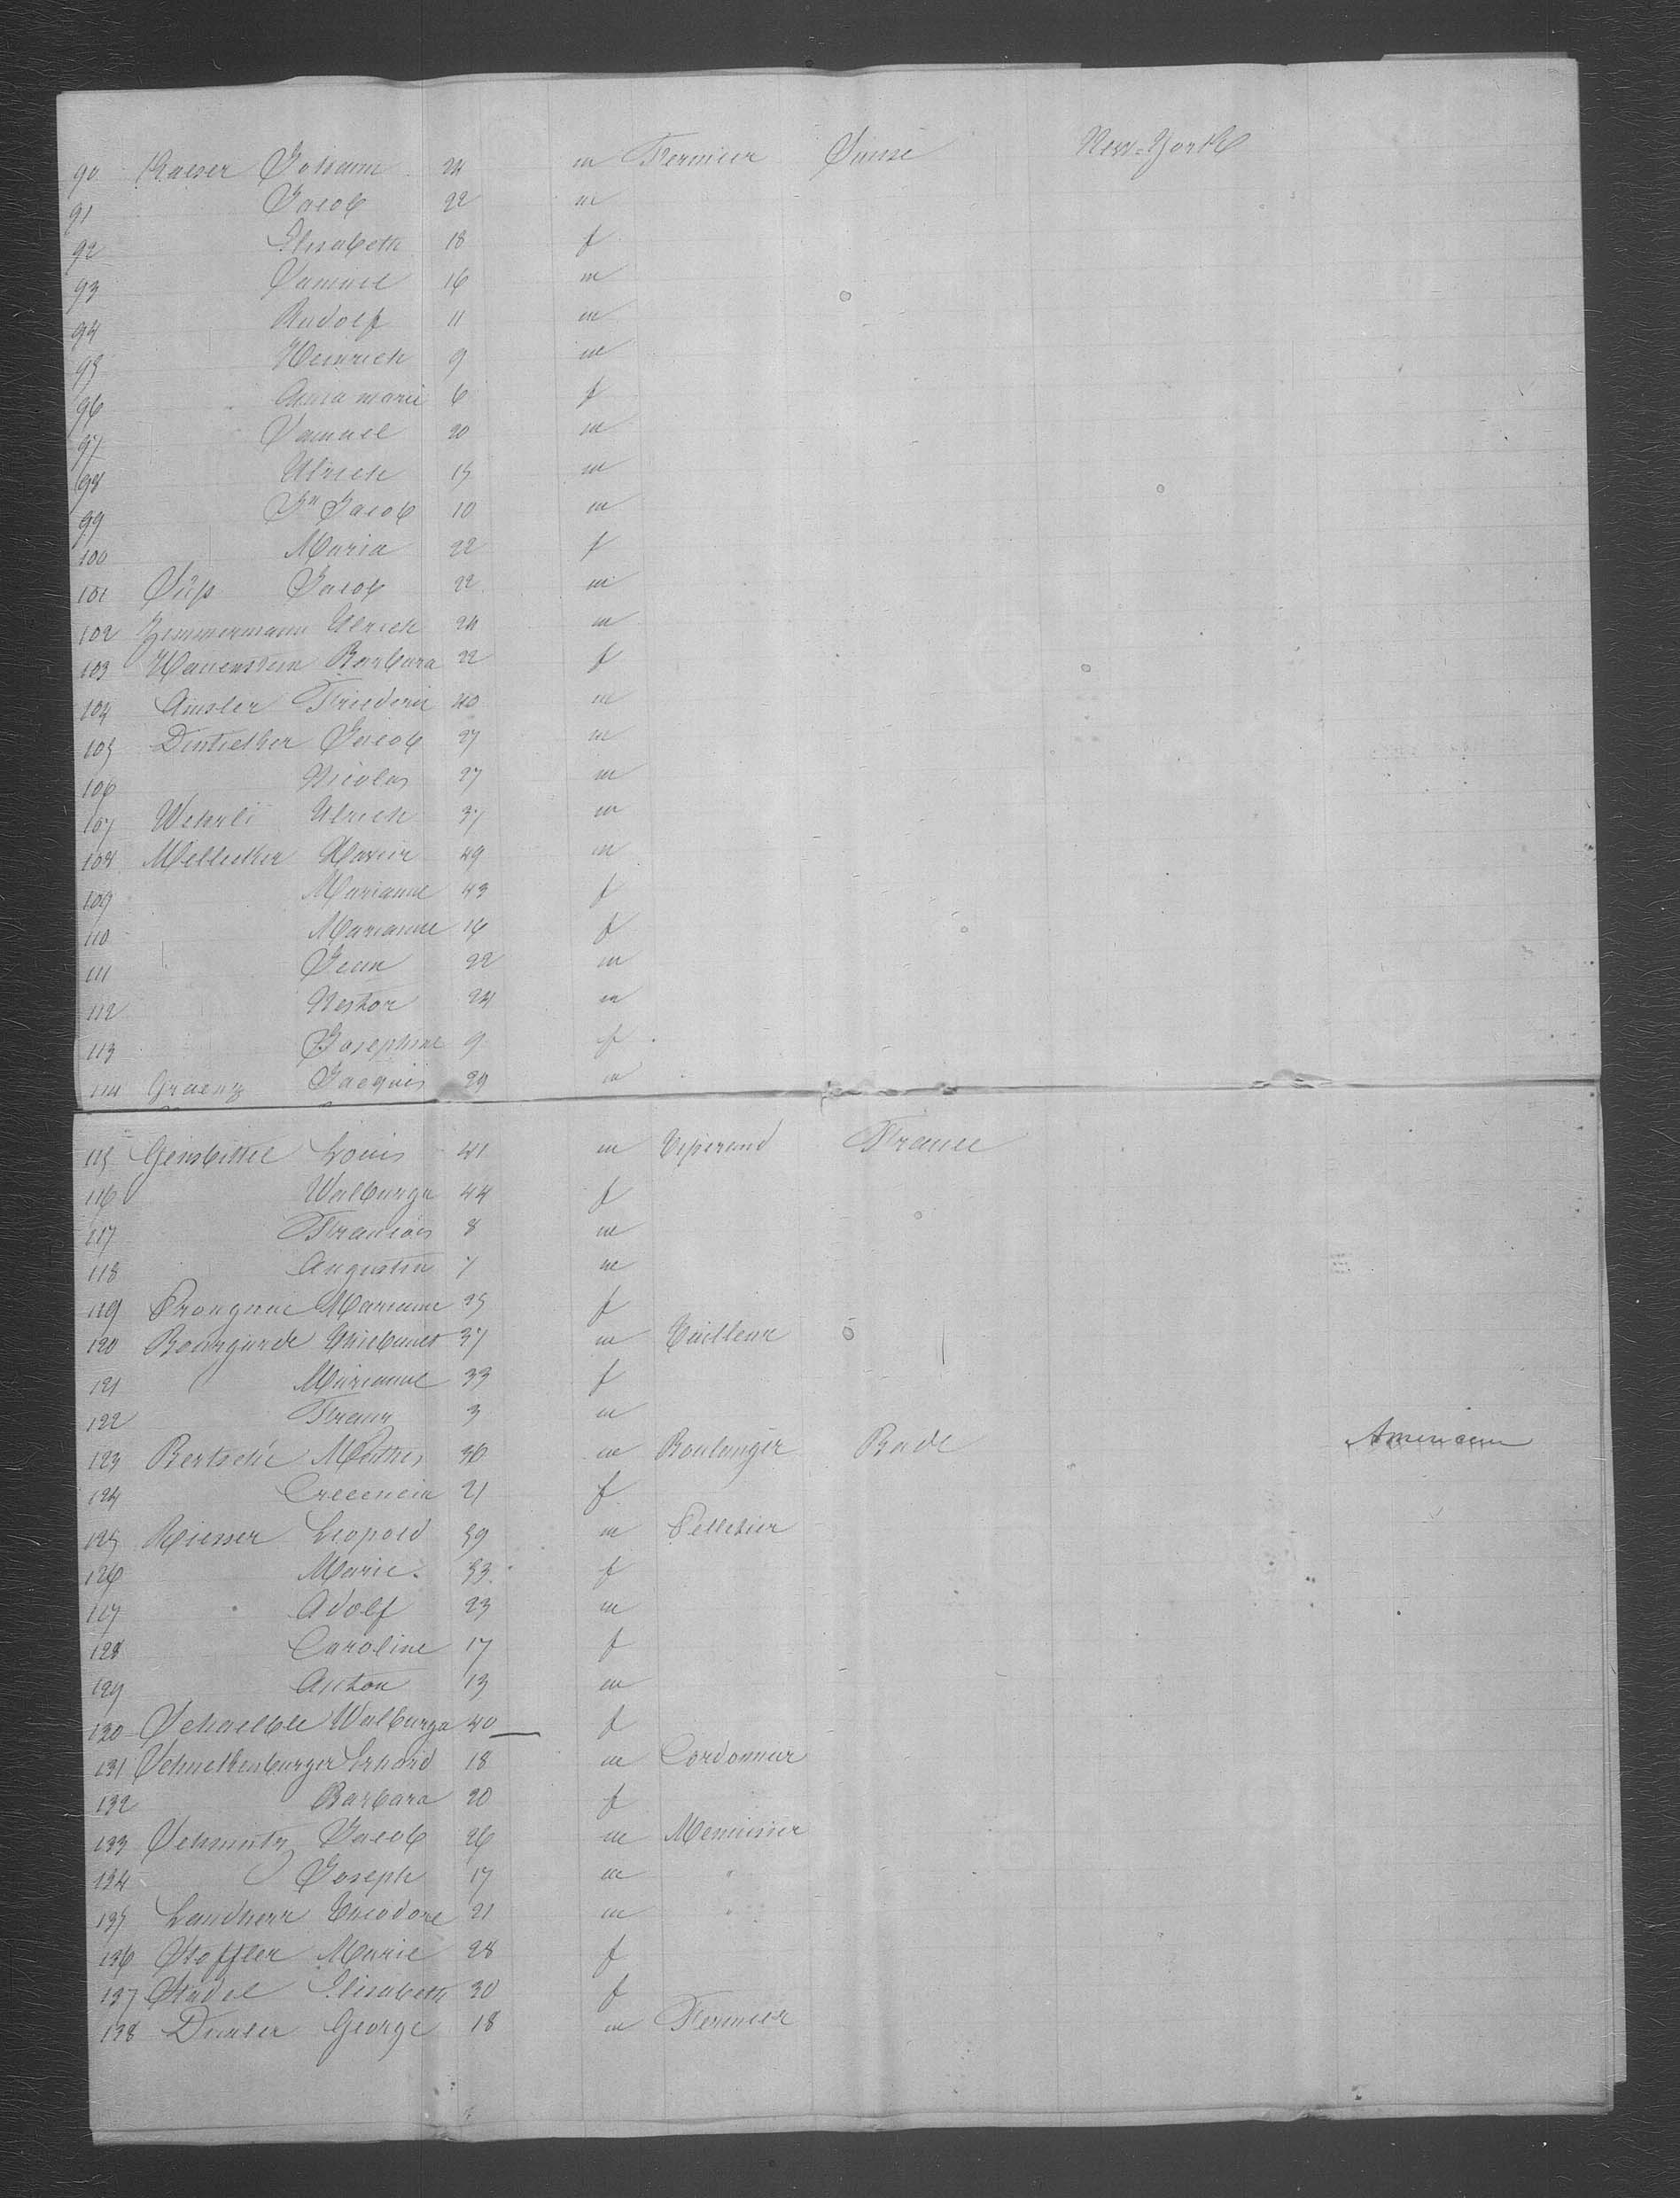 90 Kaeser Johann 24 m Fermier Suisse New-York
91 Jacob 22 m
92 Elisabeth 18 f
93 Samuel 16 m
94 Rudolf 11 m
95 Heinrich 9 m
96 Anna marie 6 f
97 Samuel 20 m
98 Ulrich 15 m
99 Jn Jacob 10 m
100 Maria 22 f
101 Süss Jacob 22 m
102 Zimmermann Ulrich 24 m
103 Hauenstein Barbara 22 f
104 Amsler Friederic 40 m
105 Jacob 27 m
106 Nicolas 27 m
107 Wehrli Ulrich 37 m
108 Xavier 49 m
109 Marianne 43 f
110 Marianne 16 f
111 Jean 22 m
112 Nestor 24 m
113 Josephine 9 f
114 Graenz Jacques 29 m
115 Gensbittel Louis 41 m Tisserand France
116 Walburga 44 f
117 Francois 8 m
118 Augustin 7 m
119 Marianne 25 f
120 Beurgarde Thiebault 37 m Tailleur
121 Marianne 33 f
122 Franz 3 m
123 Bertsché Mathes 30 m Boulanger Bade Americain
124 Crecencia 21 f
125 Riesser Leopold 59 m Pelletier
126 Marie. 53 f
117 Adolf 23 m
128 Caroline 17 f
129 Anton 13 m
130 Schaelble Walburga 40 f
131 Schneckenburger Erhard 18 m Cordonnier
132 Barbara 20 f
133 Schmutz Jacob 26 m Menuisier
134 Joseph 17 m "
135 Landherr Theodore 21 m "
136 Stoffler Marie 28 f
137 Stadel Elisabeth 30 f
138 Durler George 18 m Fermier